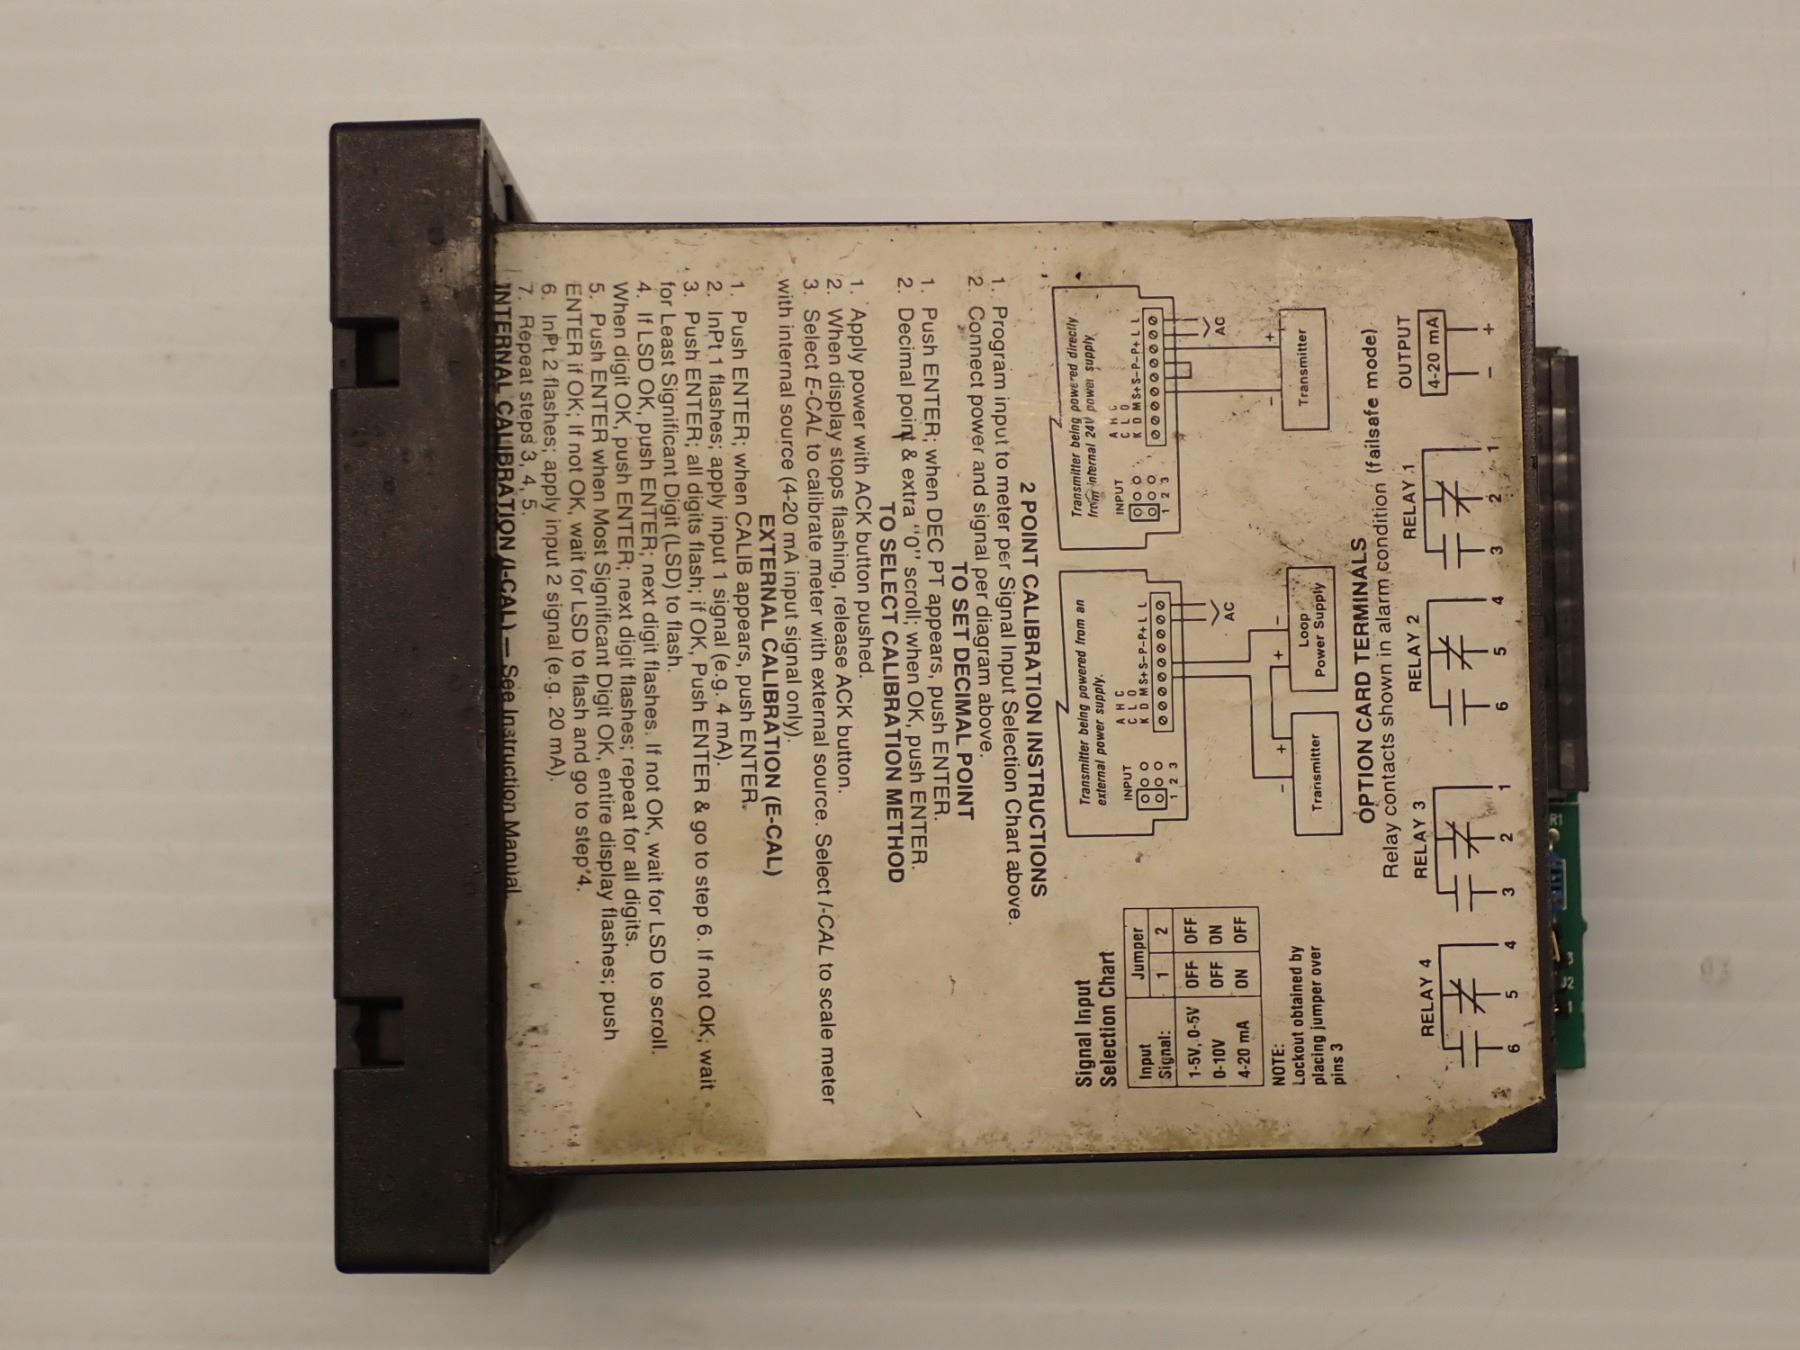 OPTION CARD TERMINALS
Relay contacts shown in alarm condition (failsafe mode)
OUTPUT
4-20 mA
+
−
RELAY 1
1
2
3
RELAY 2
4
5
6
RELAY 3
1
2
3
RELAY 4
4
5
6
Transmitter
+
−
AC
A H C
C L O
K O M S+S-P-P+ L L
INPUT
1 2 3
Transmitter being powered directly
from internal 24V power supply.
Loop
Power Supply
−
+
Transmitter
+
−
AC
A H C
C L O
K O M S+S-P-P+ L L
INPUT
1 2 3
Transmitter being powered from an
external power supply.
Signal Input
Selection Chart
Input
Signal:
Jumper
1 2
1-5V, 0-5V OFF OFF
0-10V OFF ON
4-20 mA ON OFF
NOTE:
Lockout obtained by
placing jumper over
pins 3
2 POINT CALIBRATION INSTRUCTIONS
1. Program input to meter per Signal Input Selection Chart above.
2. Connect power and signal per diagram above.
TO SET DECIMAL POINT
1. Push ENTER; when DEC PT appears, push ENTER.
2. Decimal point & extra "0" scroll; when OK, push ENTER.
TO SELECT CALIBRATION METHOD
1. Apply power with ACK button pushed.
2. When display stops flashing, release ACK button.
3. Select E-CAL to calibrate meter with external source. Select I-CAL to scale meter
with internal source (4-20 mA input signal only).
EXTERNAL CALIBRATION (E-CAL)
1. Push ENTER; when CALIB appears, push ENTER.
2. InPt 1 flashes; apply input 1 signal (e.g. 4 mA).
3. Push ENTER; all digits flash; if OK, Push ENTER & go to step 6. If not OK, wait
for Least Significant Digit (LSD) to flash.
4. If LSD OK, push ENTER; next digit flashes. If not OK, wait for LSD to scroll.
When digit OK, push ENTER; next digit flashes; repeat for all digits.
5. Push ENTER when Most Significant Digit OK, entire display flashes; push
ENTER if OK; If not OK, wait for LSD to flash and go to step 4.
6. InPt 2 flashes; apply input 2 signal (e.g. 20 mA).
7. Repeat steps 3, 4, 5.
INTERNAL CALIBRATION (I-CAL) — See Instruction Manual